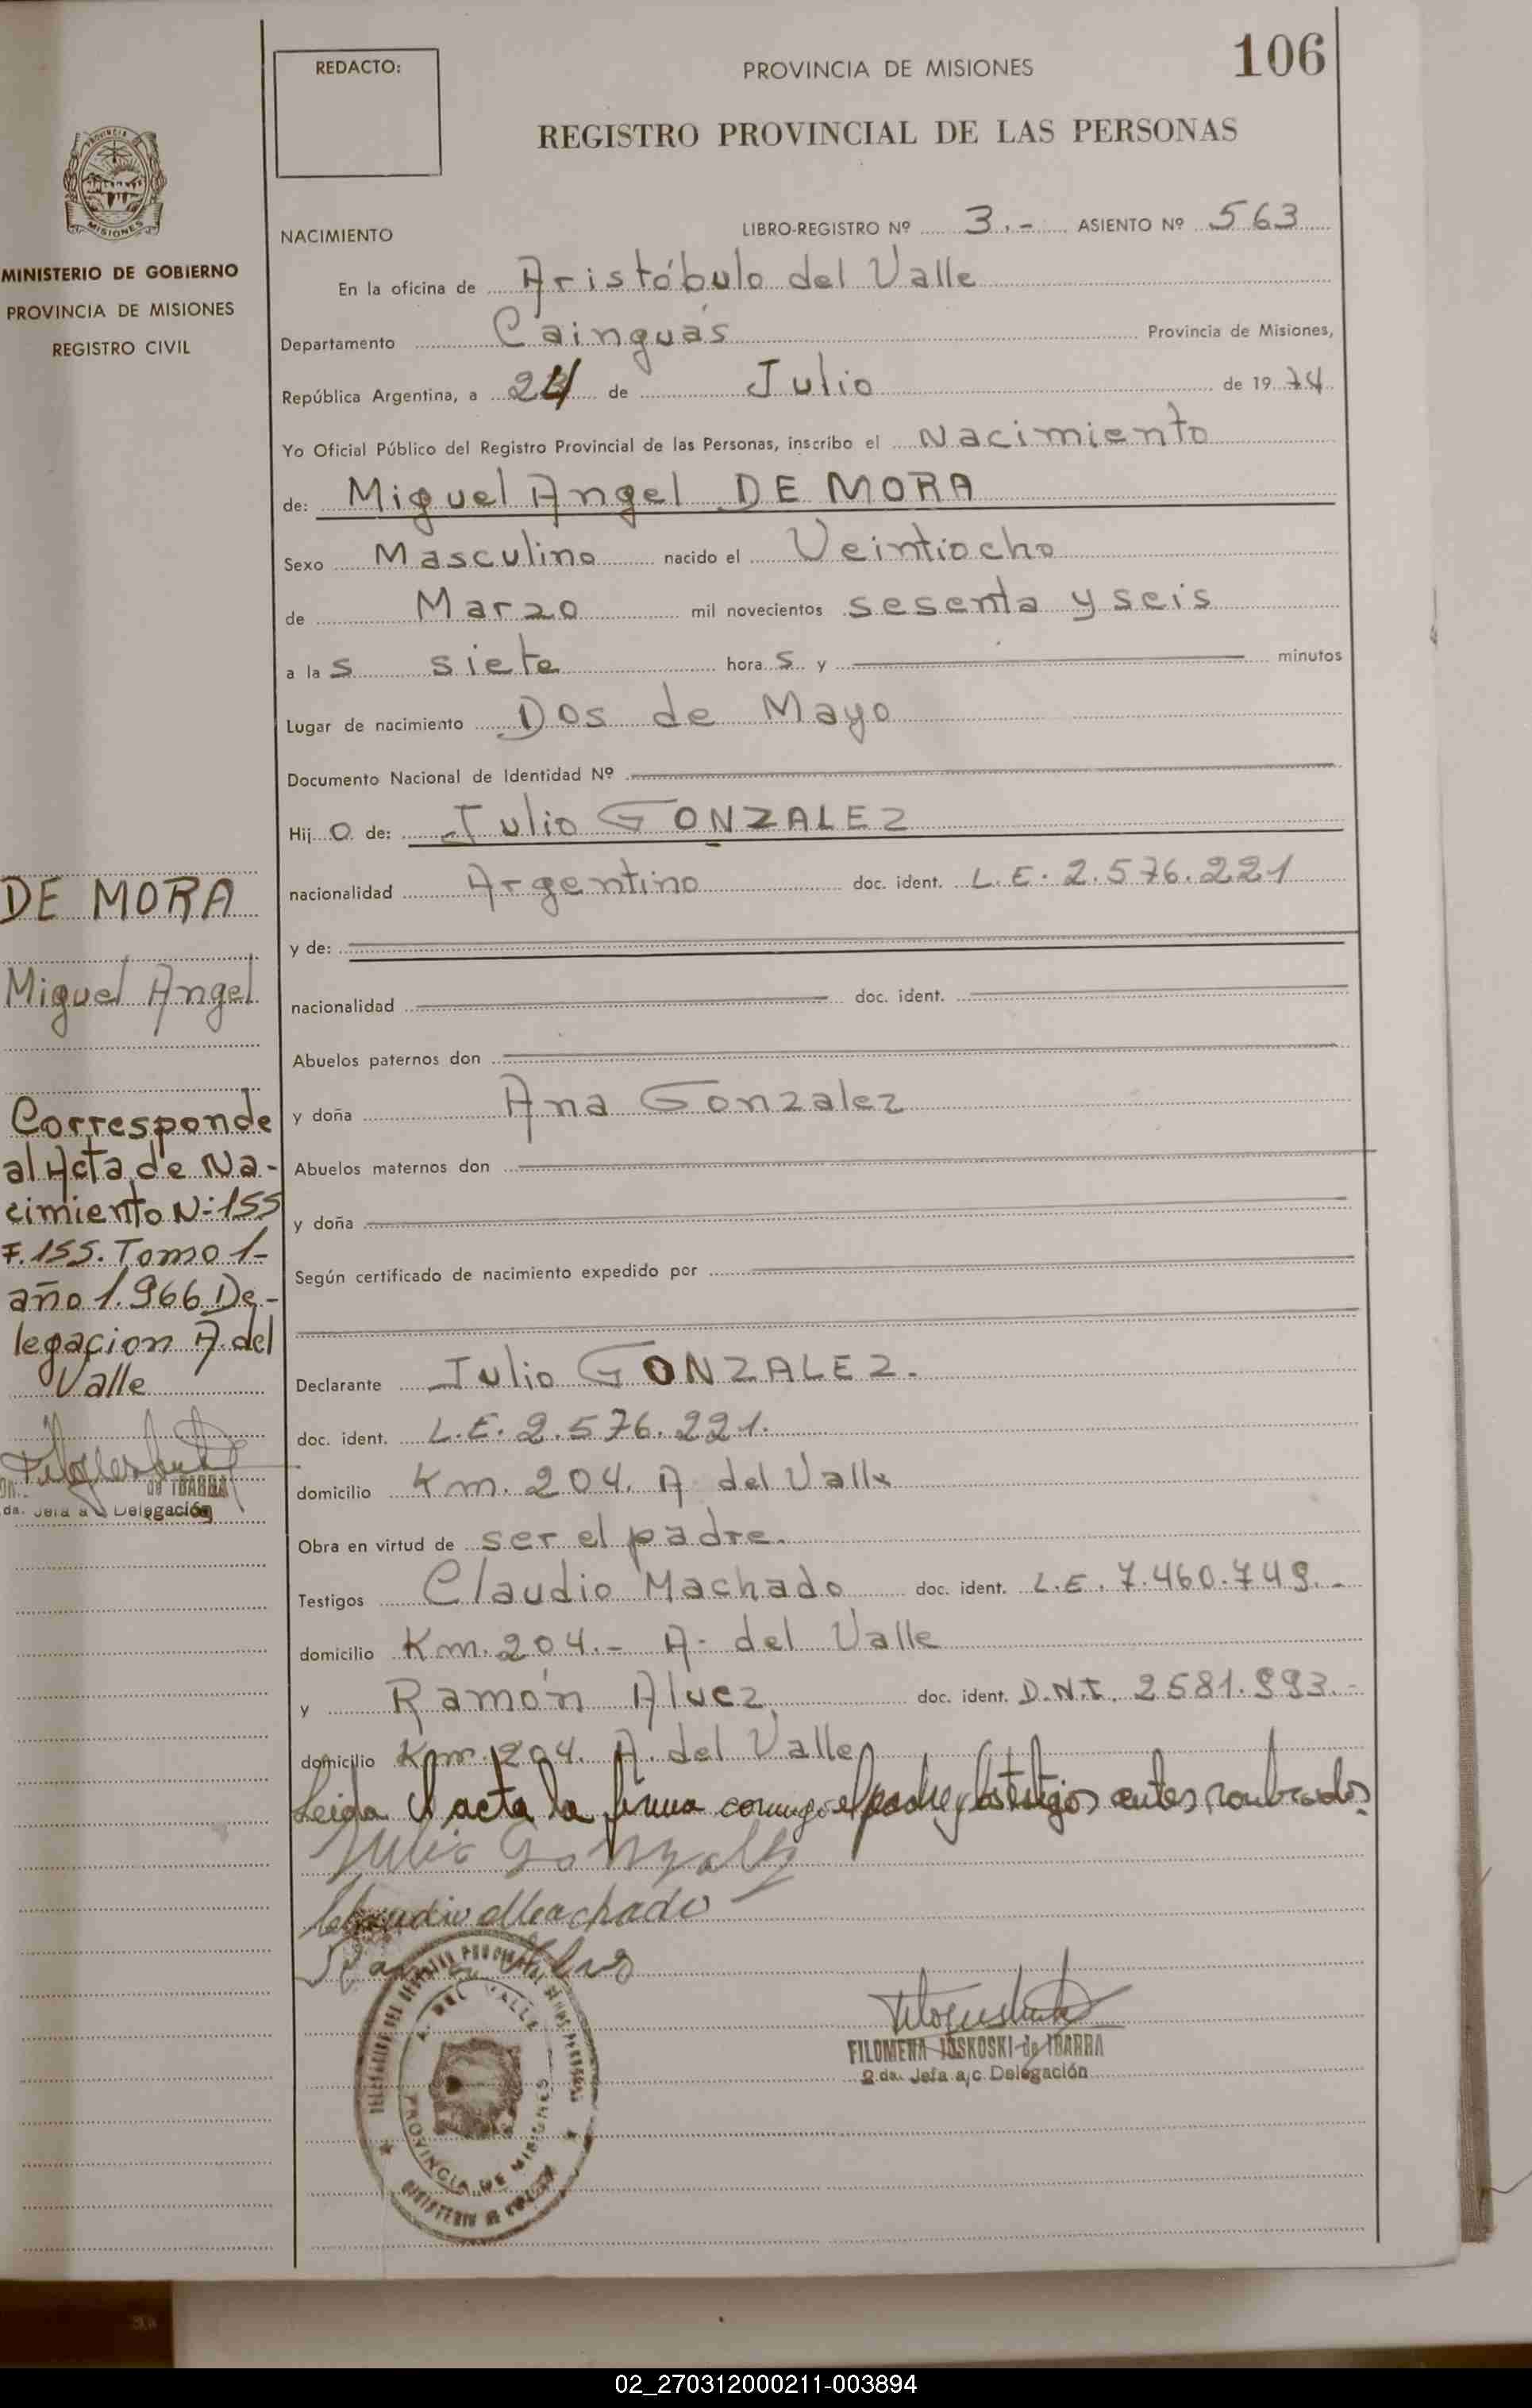 106
REDACTO:
PROVINCIA DE MISIONES
REGISTRO PROVINCIAL DE LAS PERSONAS
MISIONES
MINISTERIO DE GOBIERNO
PROVINCIA DE MISIONES
REGISTRO CIVIL
NACIMIENTO LIBRO-REGISTRO Nº 3.- ASIENTO Nº 563
En la oficina de Aristóbulo del Valle
Departamento Cainguás Provincia de Misiones,
República Argentina, a 24 de Julio de 1974
Yo Oficial Público del Registro Provincial de las Personas, inscribo el Nacimiento
de: Miguel Angel DE MORA
Sexo Masculino nacido el Veintiocho
de Marzo mil novecientos sesenta y seis
a las siete horas y minutos
Lugar de nacimiento Dos de Mayo
Documento Nacional de Identidad Nº
Hijo de: Julio GONZALEZ
nacionalidad Argentino doc. ident. L.E. 2.576.221
y de:
nacionalidad doc. ident.
Abuelos paternos don
y doña Ana Gonzalez
Abuelos maternos don
y doña
Según certificado de nacimiento expedido por
Declarante Julio GONZALEZ.
doc. ident. L.E. 2.576.221.
domicilio Km. 204. A del Valle
Obra en virtud de ser el padre.
Testigos Claudio Machado doc. ident. L.E. 7.460.749.-
domicilio Km. 204.- A. del Valle
y Ramón Alvez, doc. ident. D.N.I. 2581.993.-
domicilio Km. 204. A. del Valle
Leida el acta la firma conmigo el padre y los testigos antes nombrados.
Julio Gonzalez
Claudio Machado
FILOMENA JOSKOSKI de IBARRA
2 da. Jefa a/c Delegación
A. DEL VALLE
PROVINCIA DE MISIONES
DE MORA
Miguel Angel
Corresponde
al Acta de Na-
cimiento N: 155
F. 155. Tomo 1-
año 1.966 De-
legacion A. del
Valle
de IBARRA
da. Jefa a/c Delegación
02_270312000211-003894